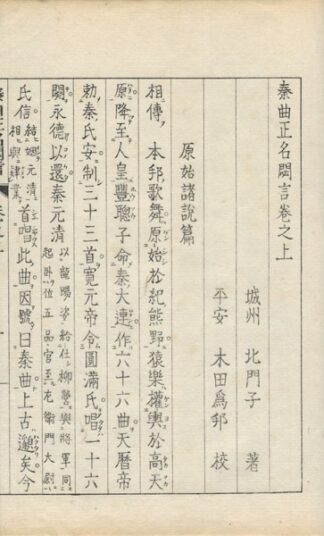 秦曲正名閟言卷之上
城州 北門子 著
平安 木田爲邦 校
原始諸說篇
相傳本邦歌舞原始於紀熊野猿樂權輿於高天
原降至人皇豐聰子命秦大連作六十六曲天曆帝
勅秦氏安制三十三首寬元帝令圓滿氏唱一十六
闋永德以還秦元清以龍陽姿給仕柳營與將軍同
起卧位五品官至左衛門大尉
氏信結婣元清
相與肄業首唱此曲因號曰秦曲上古邈矣今